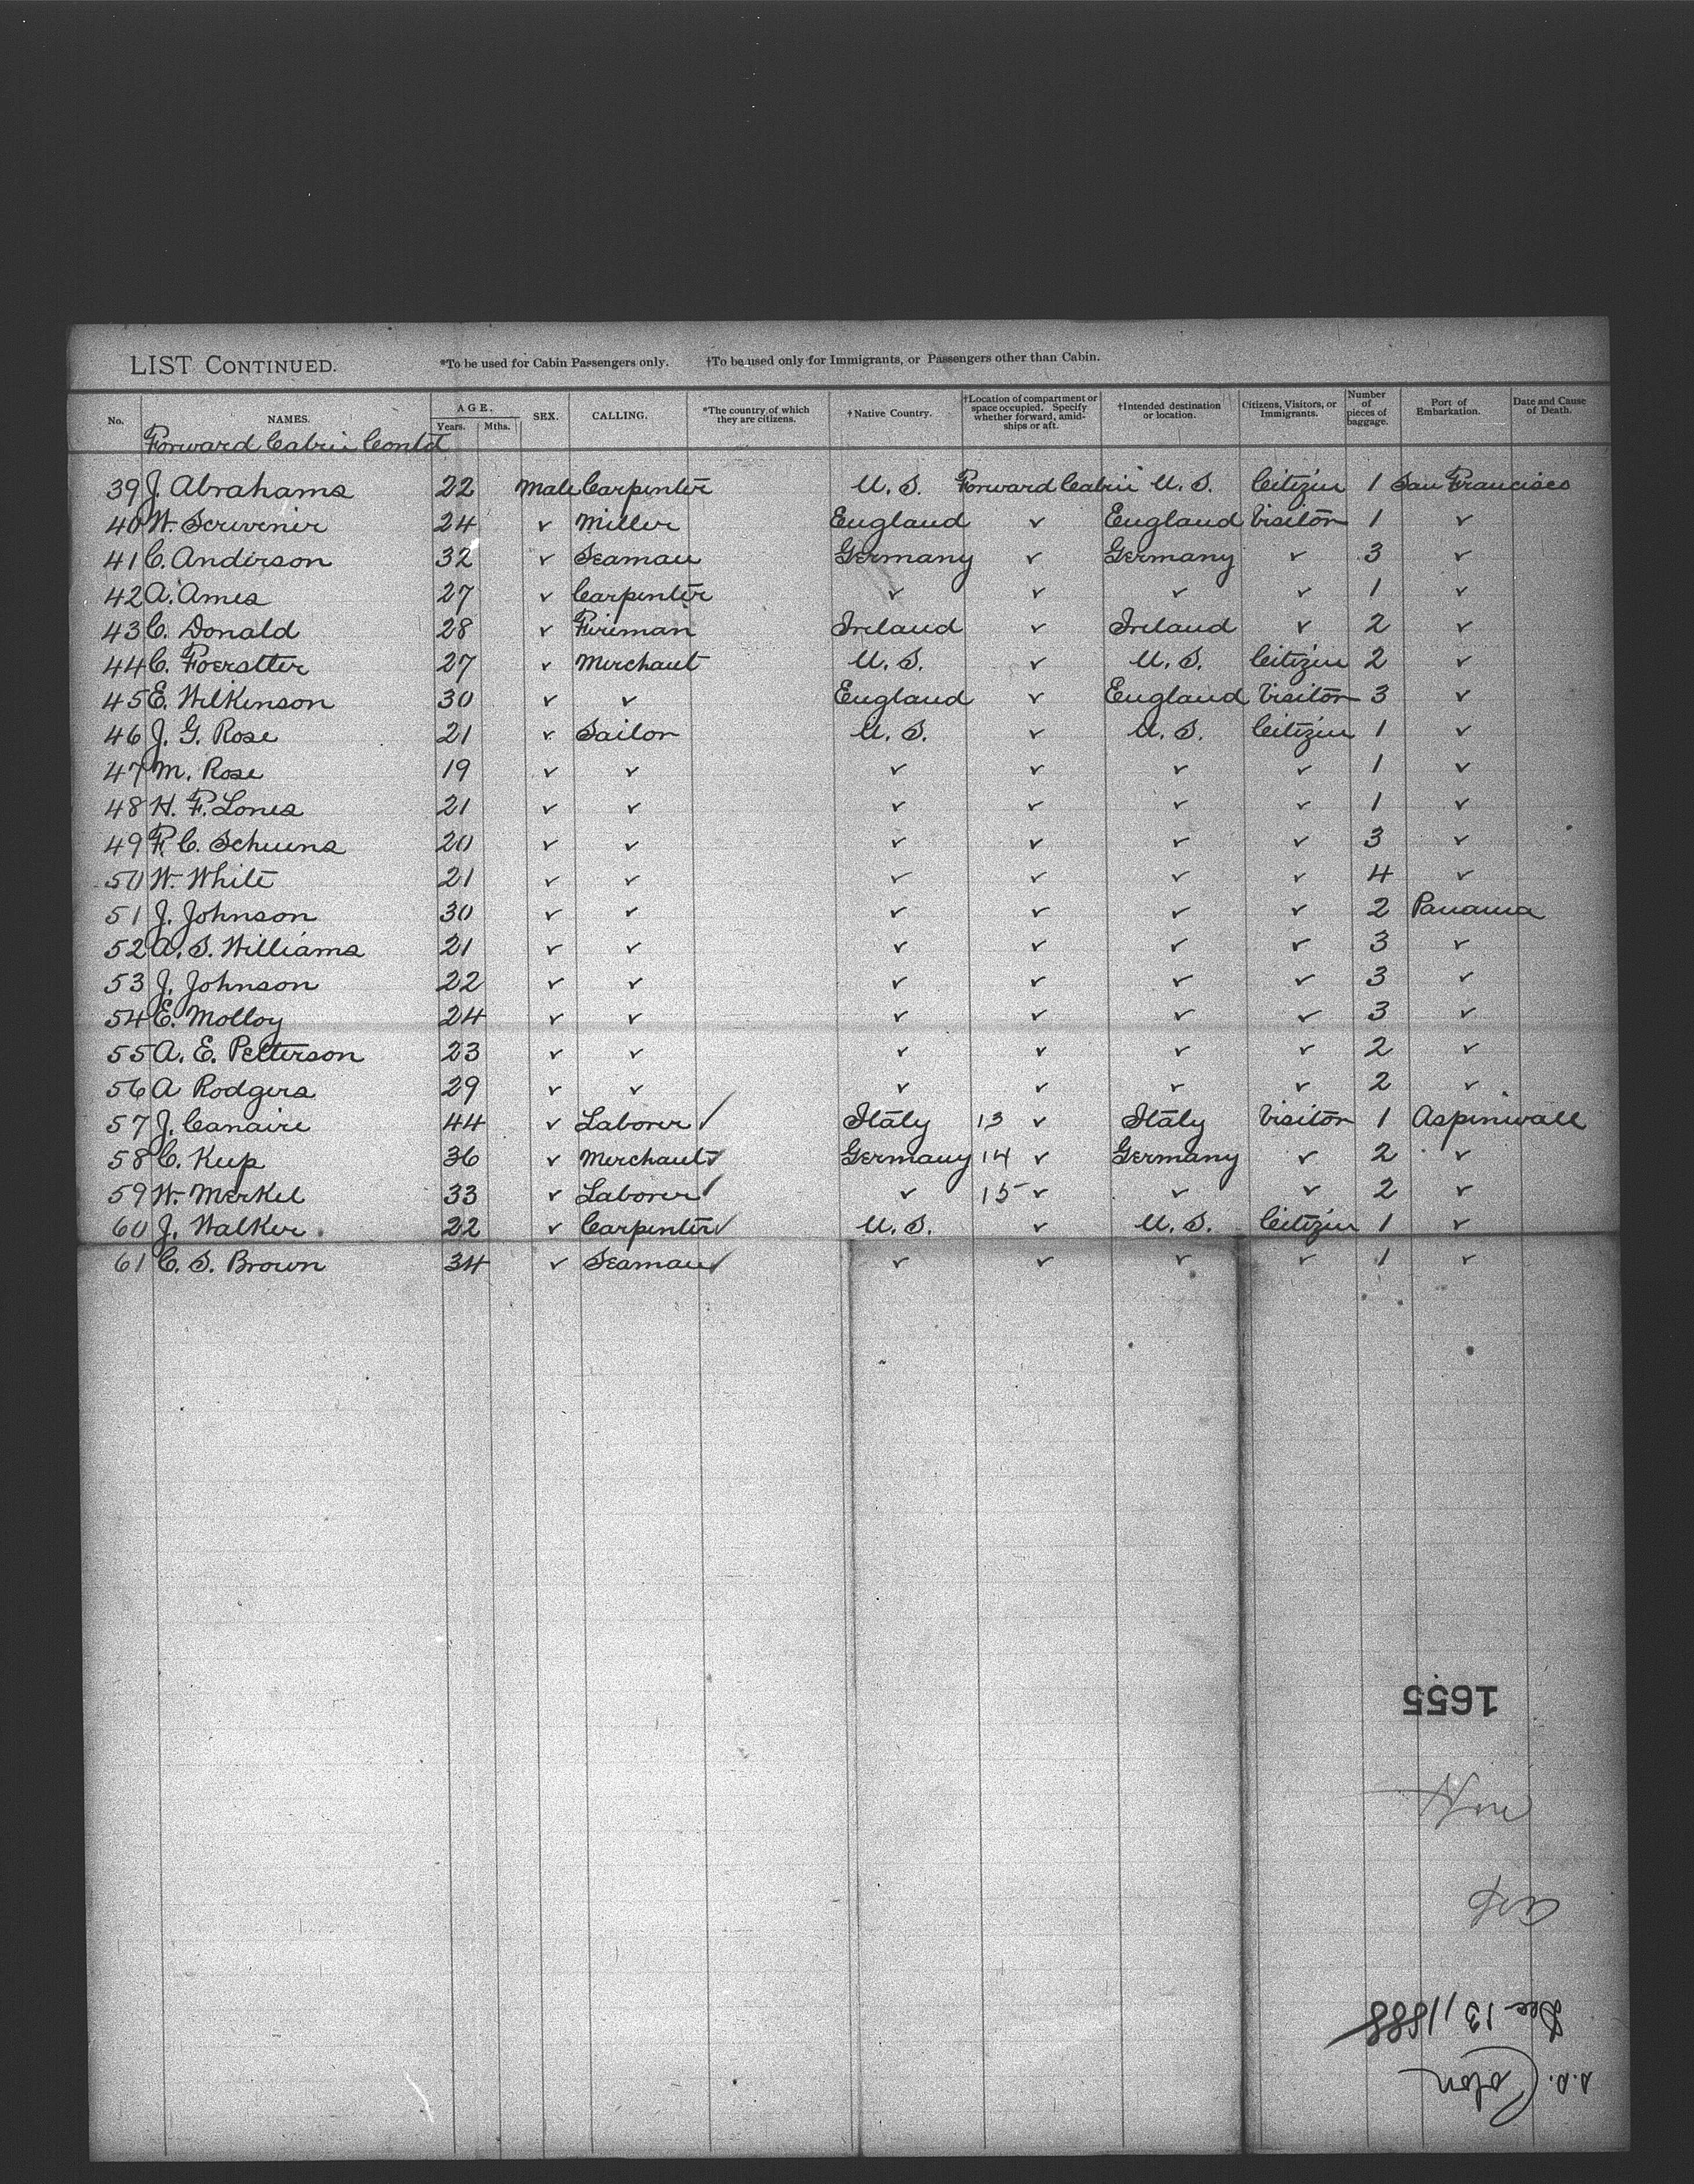 LIST CONTINUED. *To be used for Cabin Passengers only. †To be used only for Immigrants, or Passengers other than Cabin.
No. NAMES. AGE. Years. Mths. SEX. CALLING. *The country of which they are citizens. †Native Country. †Location of compartment or space occupied. Specify whether forward, amidships or aft. †Intended destination or location. Citizens, Visitors, or Immigrants. Number of pieces of baggage. Port of Embarkation. Date and Cause of Death.
Forward Cabin Contd
39 J. Abrahams 22 Male Carpenter U.S. Forward Cabin U.S. Citizen 1 San Francisco
40 W. Scrivener 24 ✓ Miller England ✓ England Visitor 1 ✓
41 C. Anderson 32 ✓ Seaman Germany ✓ Germany ✓ 3 ✓
42 A. Ames 27 ✓ Carpenter ✓ ✓ ✓ ✓ 1 ✓
43 C. Donald 28 ✓ Fireman Ireland ✓ Ireland ✓ 2 ✓
44 C. Foerstter 27 ✓ Merchant U.S. ✓ U.S. Citizen 2 ✓
45 E. Wilkinson 30 ✓ ✓ England ✓ England Visitor 3 ✓
46 J. G. Rose 21 ✓ Sailor U.S. ✓ U.S. Citizen 1 ✓
47 M. Rose 19 ✓ ✓ ✓ ✓ ✓ ✓ 1 ✓
48 H. F. Lones 21 ✓ ✓ ✓ ✓ ✓ ✓ 1 ✓
49 F. C. Schuens 20 ✓ ✓ ✓ ✓ ✓ ✓ 3 ✓
50 W. White 21 ✓ ✓ ✓ ✓ ✓ ✓ 4 ✓
51 J. Johnson 30 ✓ ✓ ✓ ✓ ✓ ✓ 2 Panama
52 A. S. Williams 21 ✓ ✓ ✓ ✓ ✓ ✓ 3 ✓
53 J. Johnson 22 ✓ ✓ ✓ ✓ ✓ ✓ 3 ✓
54 E. Molloy 24 ✓ ✓ ✓ ✓ ✓ ✓ 3 ✓
55 A. E. Petterson 23 ✓ ✓ ✓ ✓ ✓ ✓ 2 ✓
56 A Rodgers 29 ✓ ✓ ✓ ✓ ✓ ✓ 2 ✓
57 J. Canaire 44 ✓ Laborer ✓ Italy 13 ✓ Italy Visitor 1 Aspinwall
58 C. Keep 36 ✓ Merchant ✓ Germany 14 ✓ Germany ✓ 2 ✓
59 W. Merkel 33 ✓ Laborer ✓ ✓ 15 ✓ ✓ ✓ 2 ✓
60 J. Walker 22 ✓ Carpenter ✓ U.S. ✓ U.S. Citizen 1 ✓
61 C. S. Brown 34 ✓ Seaman ✓ ✓ ✓ ✓ ✓ 1 ✓
1655
Dec 13, 1888
S.S. Colon